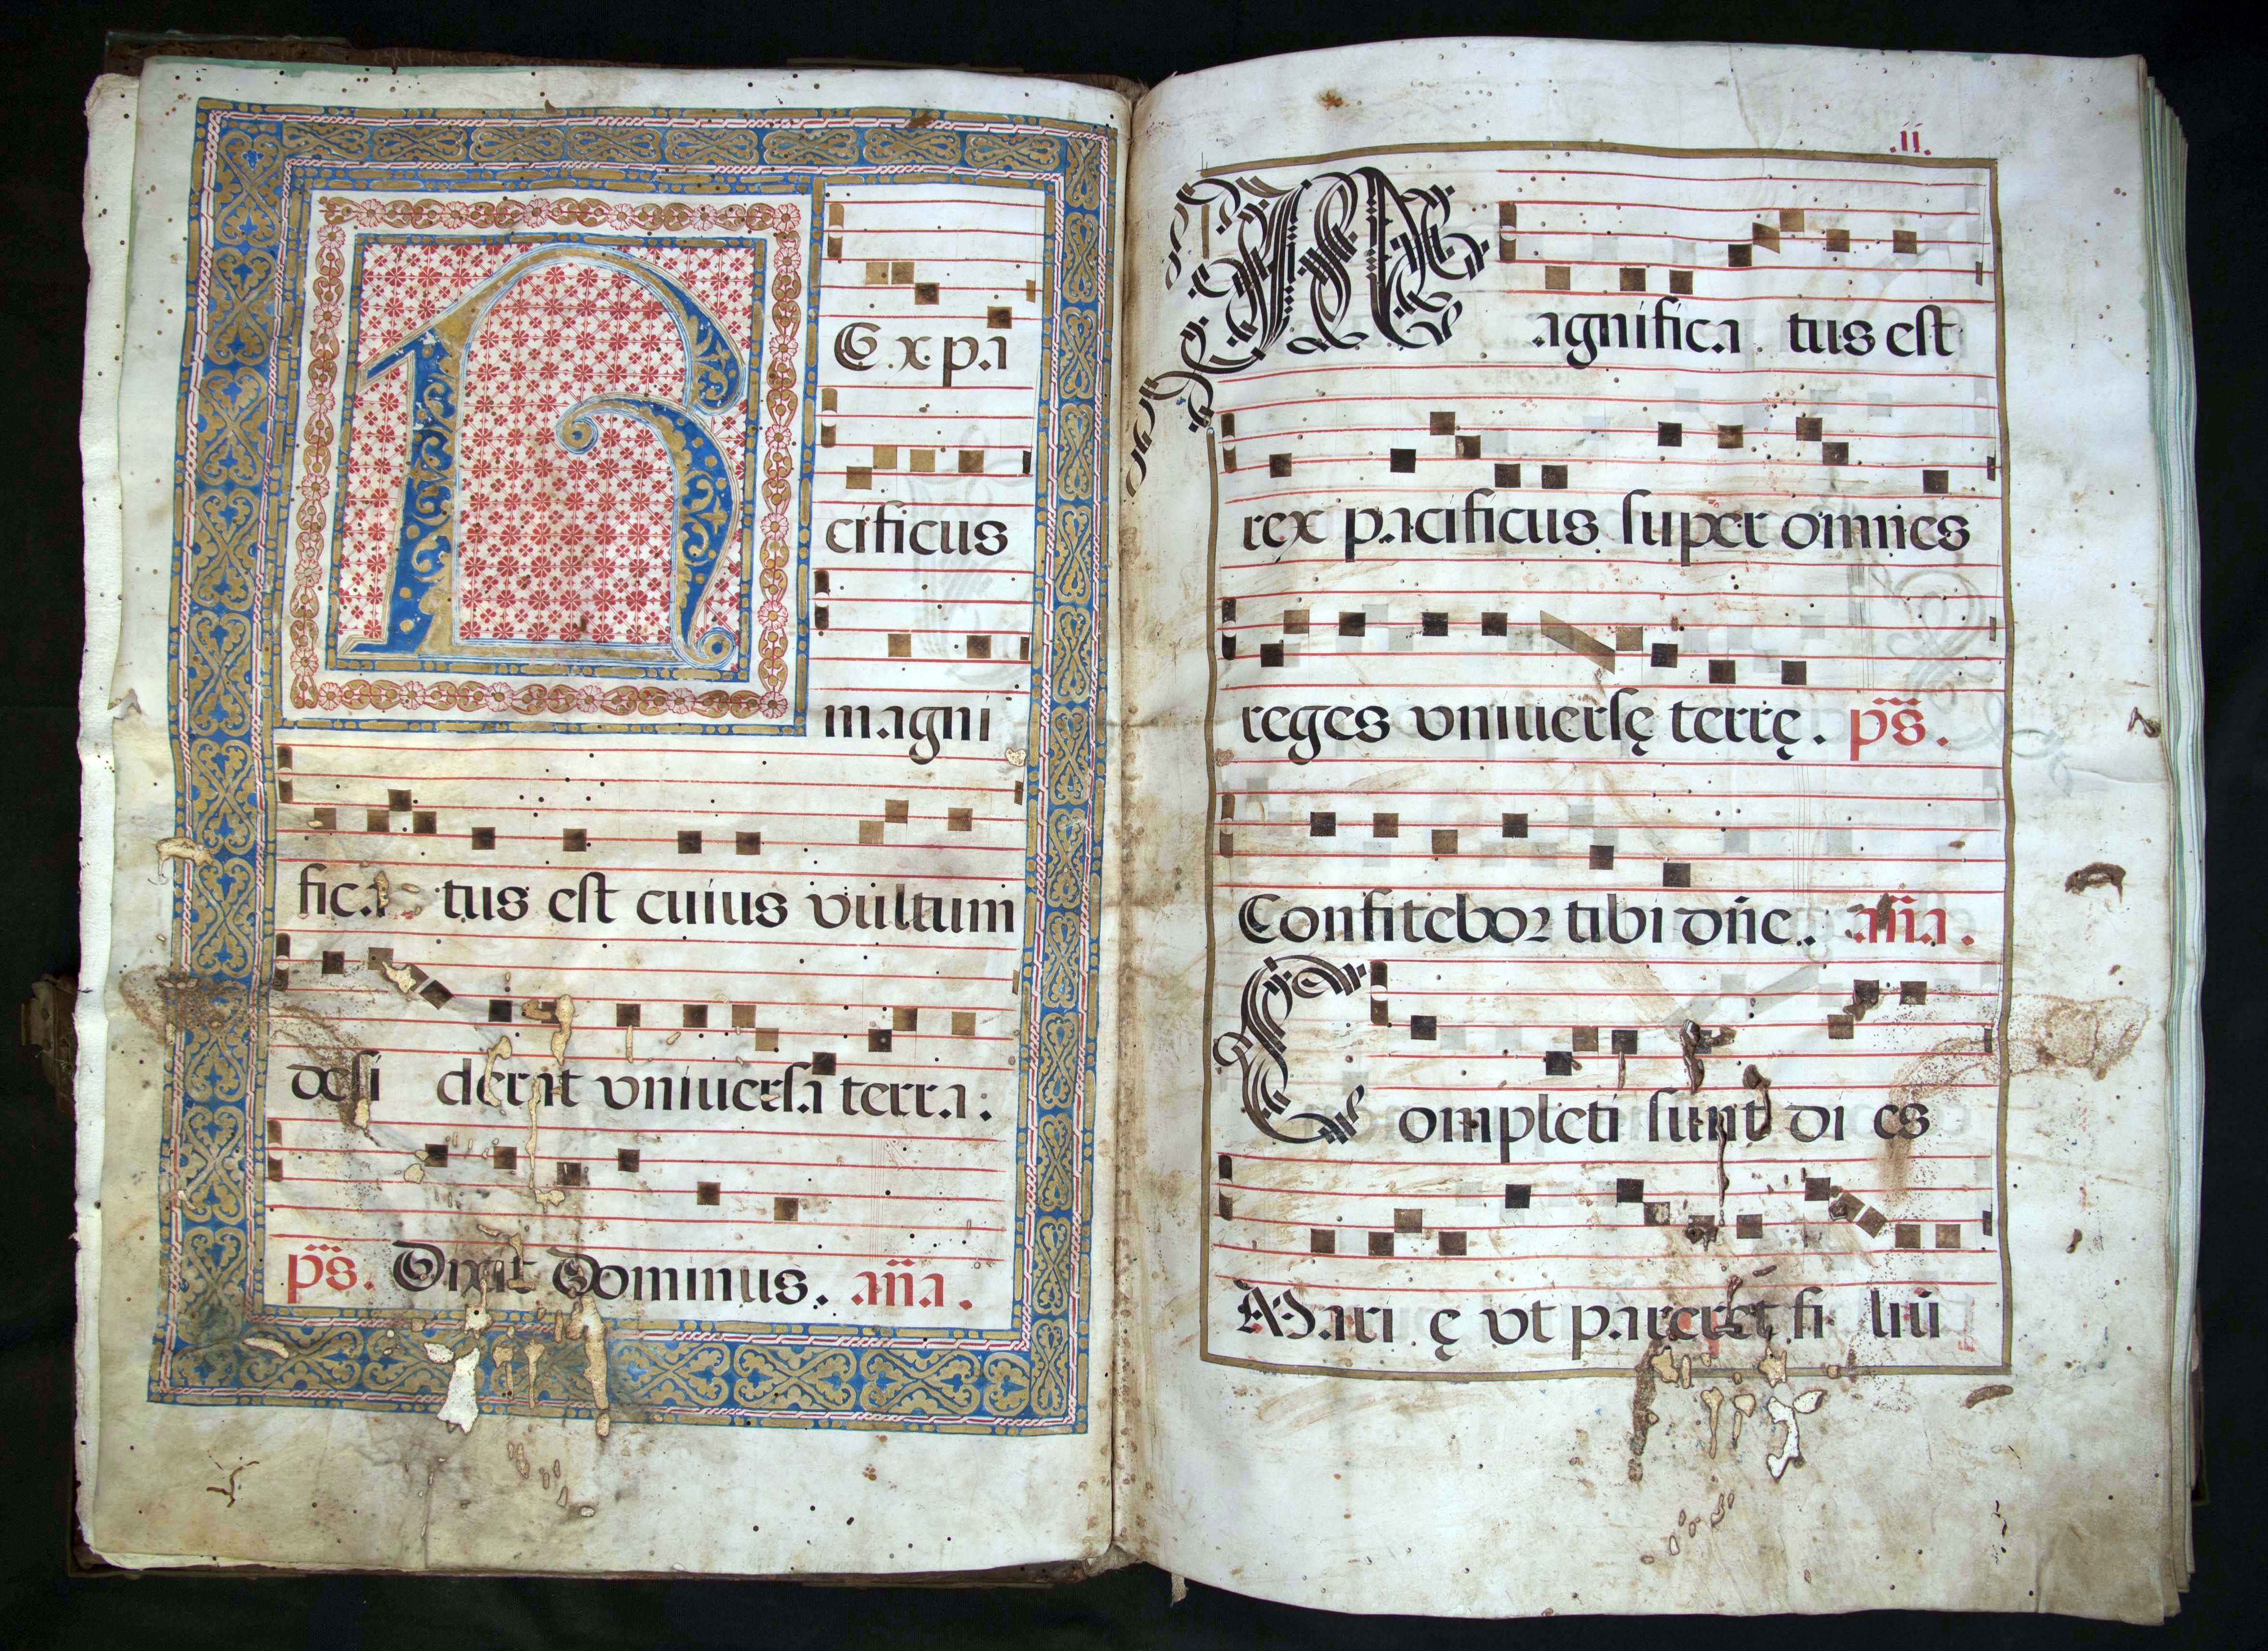 R Ex pa
cificus
magni
fica tus est cuius vultum
desi derat vniuersa terra.
p̄s. Dixit Dominus. an̄a.
.ii.
Magnifica tus est
rex pacificus super omnes
reges vniuersę terrę. p̄s.
Confitebor tibi dn̄e. an̄a.
Completi sunt di es
Mari ę vt pareret fi liū